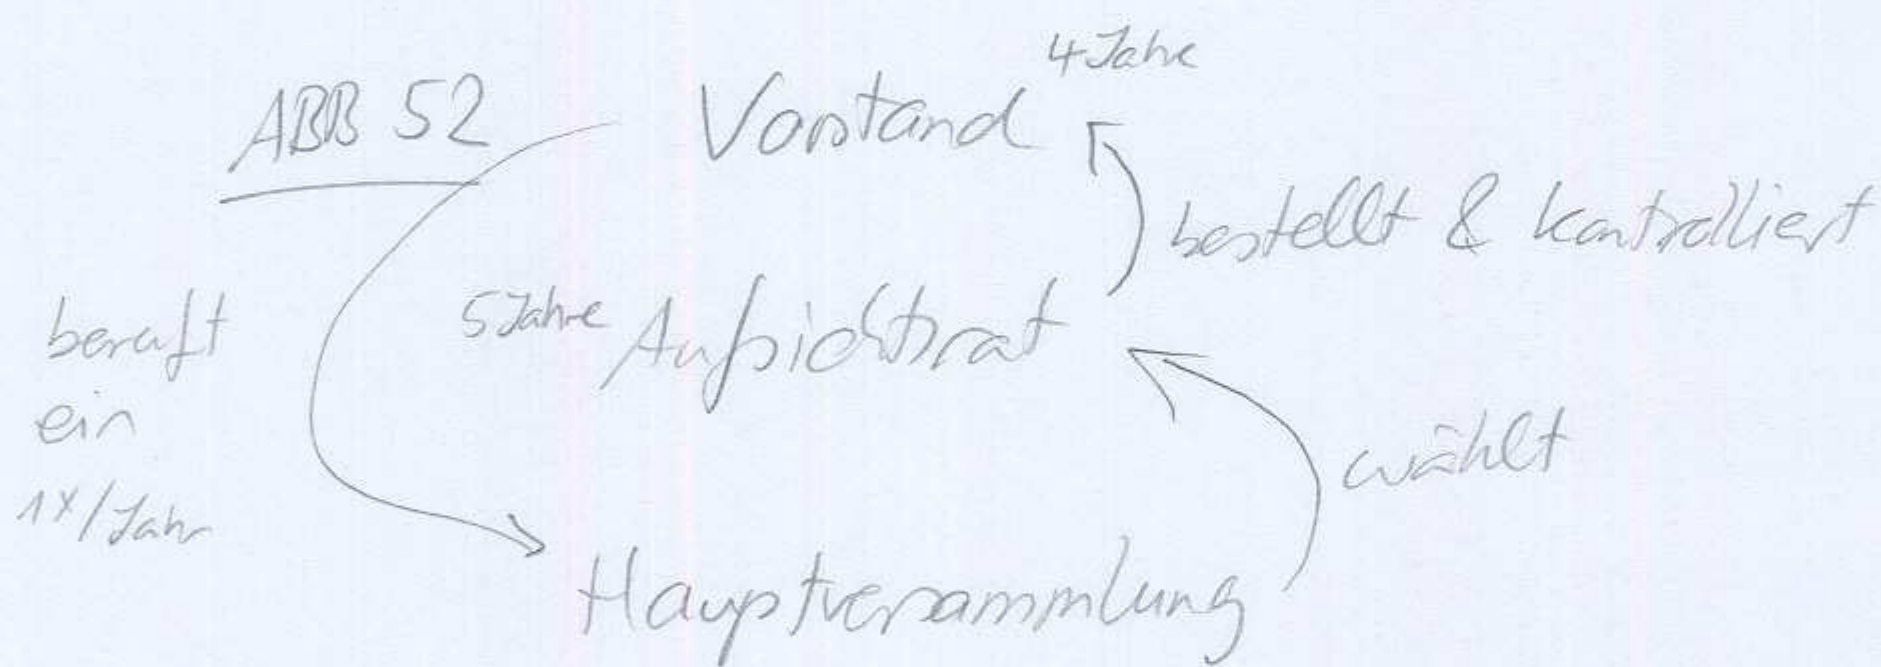 4 Jahre
ABB 52
Vorstand
bestellt & kontrolliert
5 Jahre
Aufsichtsrat
beruft
ein
1x/Jahr
wählt
Hauptversammlung